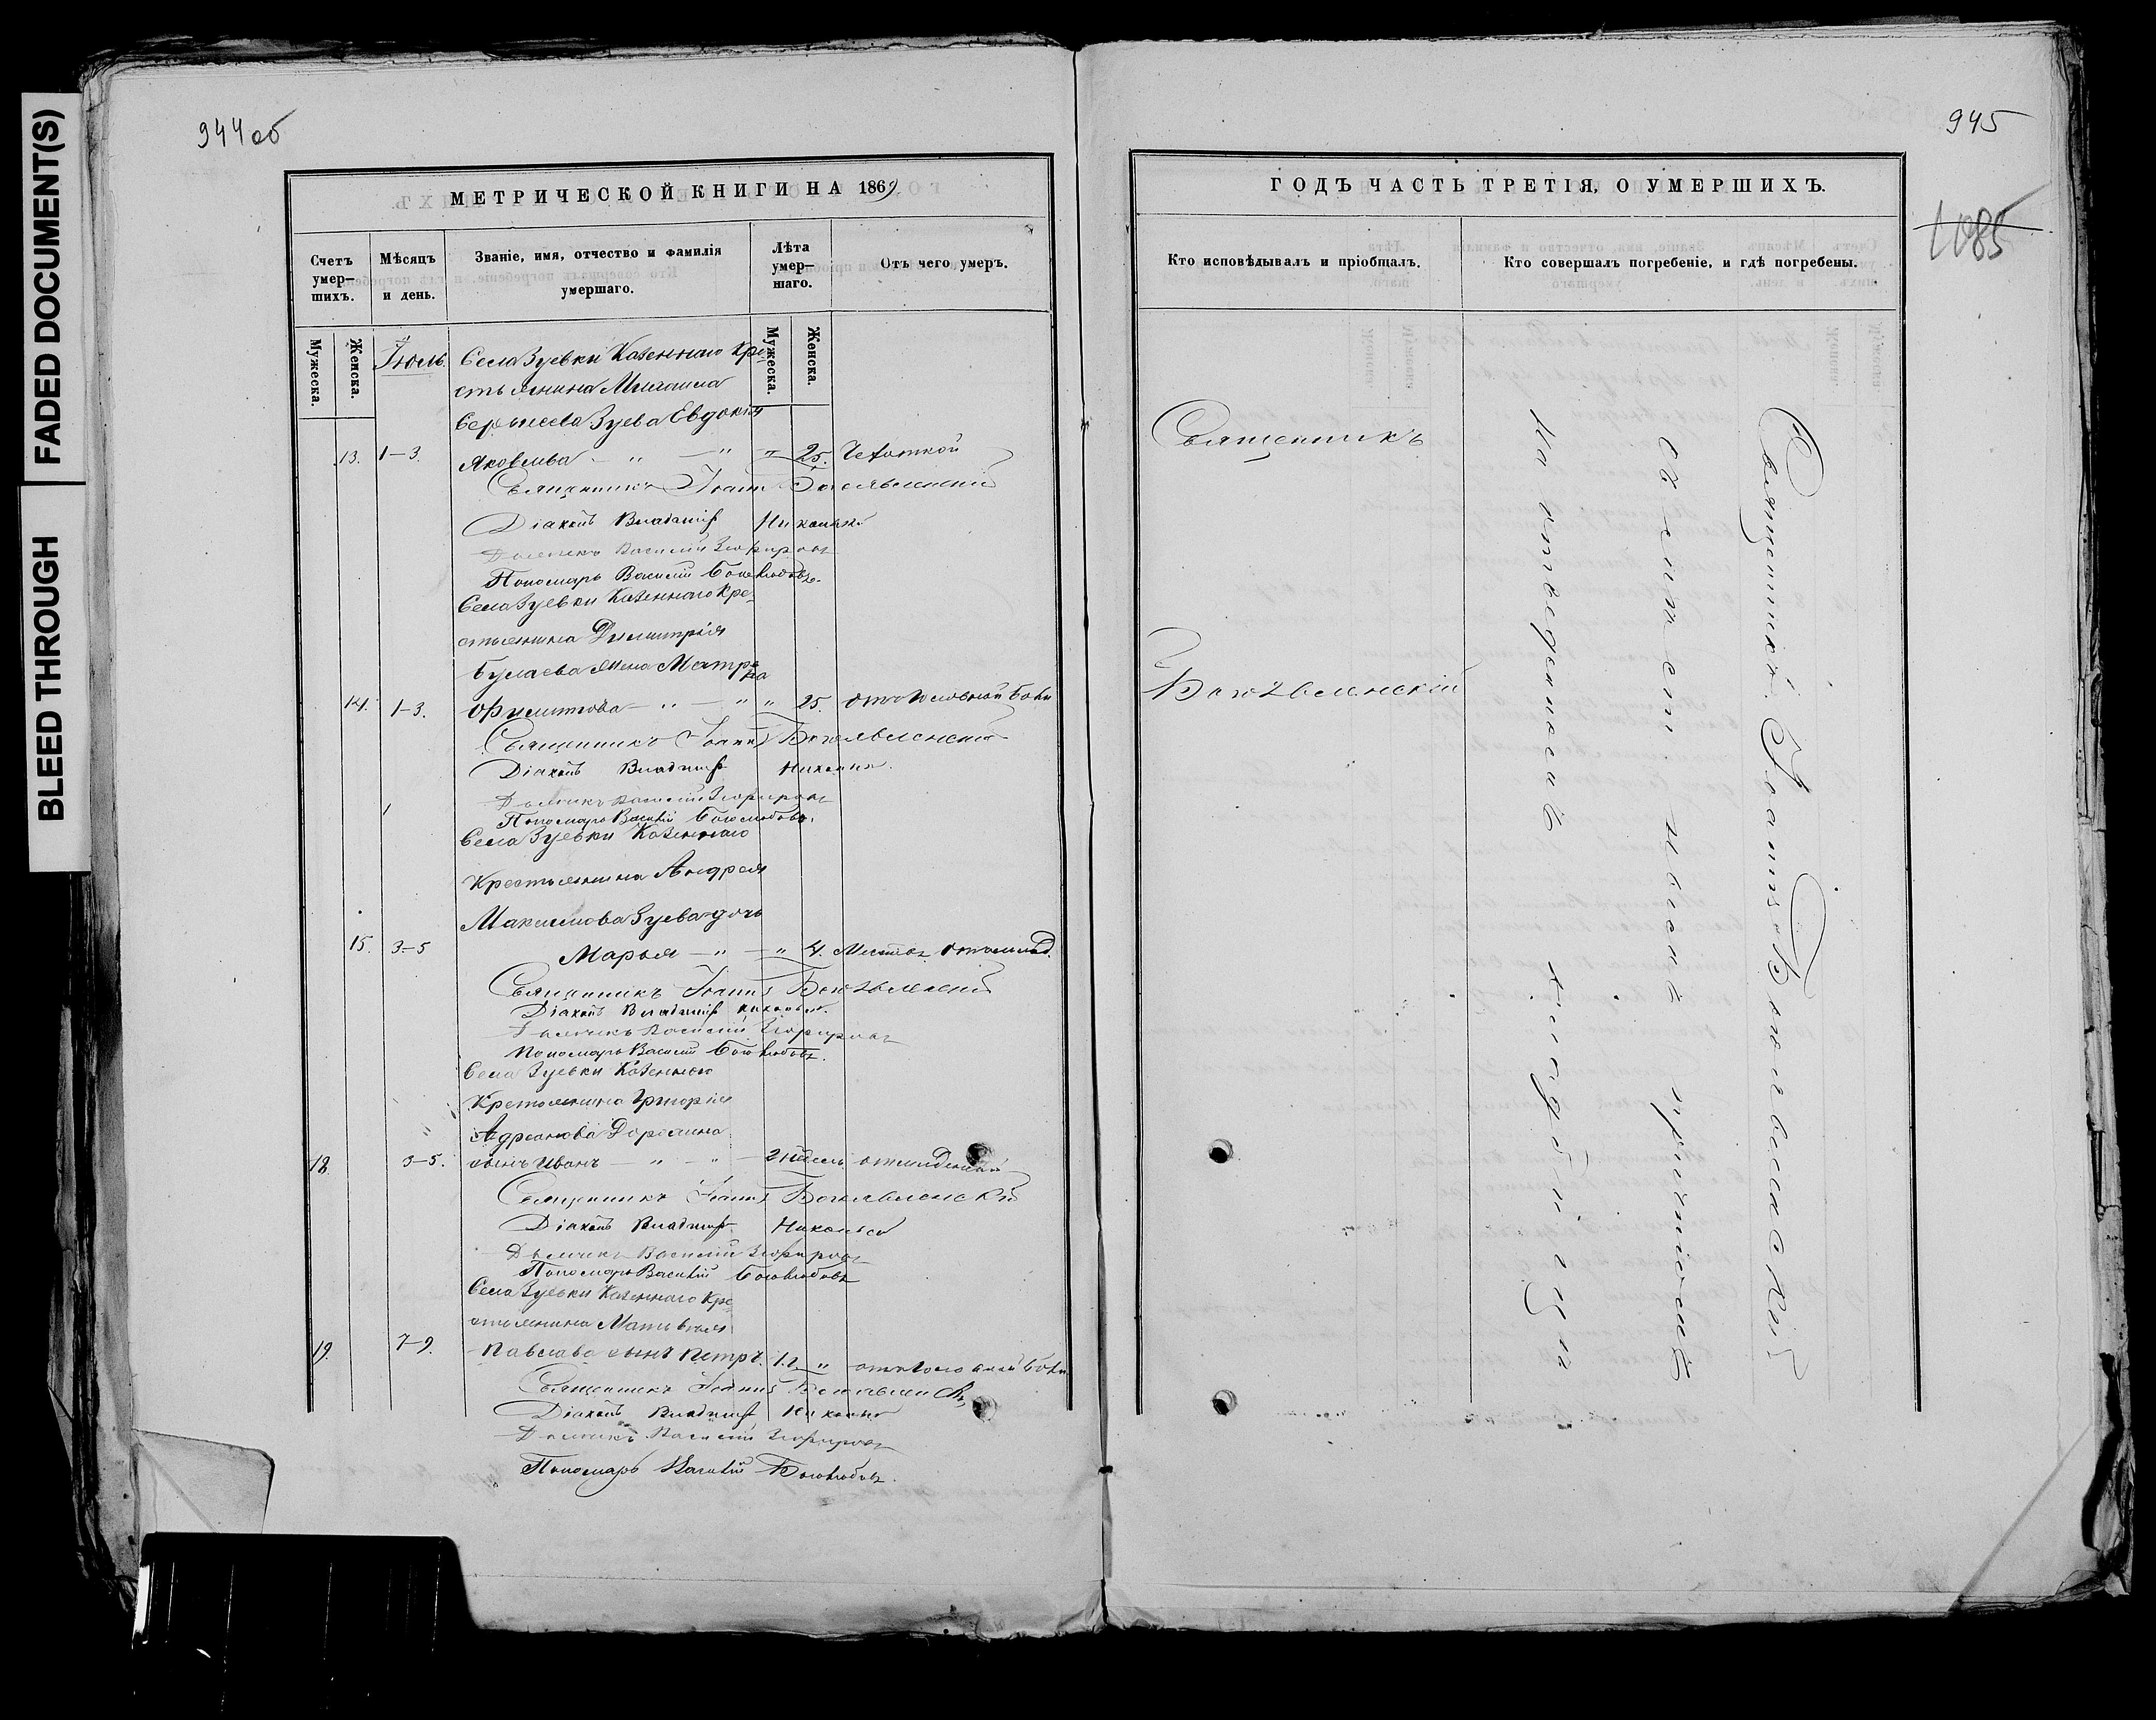 FADED DOCUMENT(S)
BLEED THROUGH
944 об
МЕТРИЧЕСКОЙ КНИГИ НА 1869
Счетъ умер-шихъ.
Мѣсяцъ и день.
Званіе, имя, отчество и фамилія умершаго.
Лѣта умер-шаго.
Отъ чего умеръ.
Мужеска.
Женска.
Мужеска.
Женска.
Іюль.
Села Зуевки Казеннаго Кре-
стьянина Михаила
Сергѣева Зуева Евдокія
13. 1-3. Яковлева — " — " " 25. Чахоткой
Священникъ Іоаннъ Богоявленскій
Діаконъ Владимір Никольскій
Дьячекъ Василій
Пономарь Василій Боголюбовъ.
Села Зуевки Казеннаго Кре-
стьянина Димитрія
Булаева жена Матро
на
14. 1-3. Филиппова — " — " " 25. отъ головной боли
Священникъ Іоаннъ Богоявленскій
Діаконъ Владимір Никольскій.
Дьячекъ Василій
Пономарь Василій Боголюбовъ.
Села Зуевки Казеннаго
Крестьянина Андрея
Максимова Зуева дочь
15. 3-5 Марья — " — " 4. Месяцъ
Священникъ Іоаннъ Богоявленскій
Діаконъ Владимір Никольскій.
Дьячекъ Василій
Пономарь Василій Боголюбовъ.
Села Зуевки Казеннаго
Крестьянина Григорія
Адреанова
18. 3-5. сынъ Иванъ — " — " — 2 недель
Священникъ Іоаннъ Богоявленскій
Діаконъ Владимір Никольскій
Дьячекъ Василій
Пономарь Василій Боголюбовъ
Села Зуевки Казеннаго Кре-
стьянина Матвея
19. 7-9. Павлова сынъ Петръ. 1 г. " отъ головной боли
Священникъ Іоаннъ
Діаконъ Владимір Никольскій
Дьячекъ Василій
Пономарь Василій Боголюбовъ.
945
1085
ГОДЪ ЧАСТЬ ТРЕТІЯ, О УМЕРШИХЪ.
Кто исповѣдывалъ и пріобщалъ.
Кто совершалъ погребеніе, и гдѣ погребены.
Священникъ
Богоявленскій
Священникъ Іоаннъ Богоявленскій
съ симъ причтомъ
На отведенномъ кладбищѣ